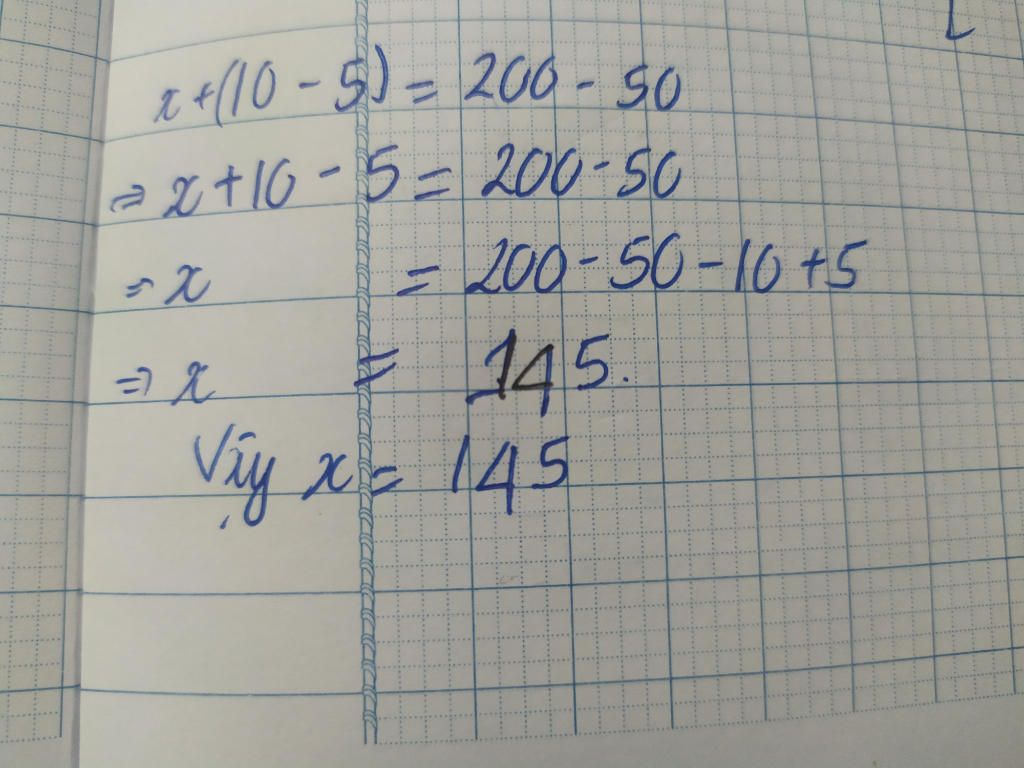 x+(10-5)=200-50
⇒ x+10-5=200-50
⇒ x =200-50-10+5
⇒ x = 145.
Vậy x=145